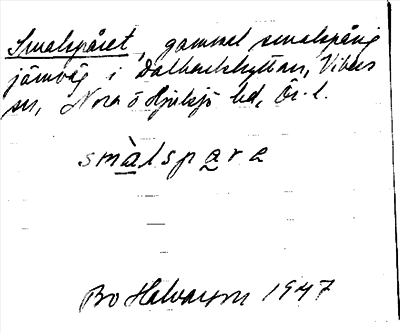 Smalspåret, gammal smalspårig
järnväg i Dalkarlshyttan, Vikers
sn, Nora o Hjulsjö hd, Ör. l.
smàlspara
Bo Halvarson 1947